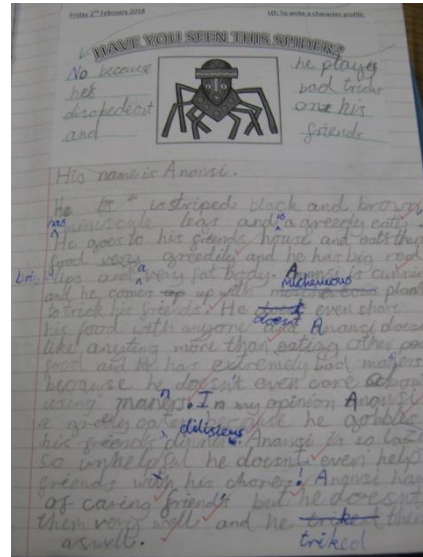 Friday 2nd February 2018
LO: To write a character profile.
HAVE YOU SEEN THIS SPIDER?
No because
he's
disopedeost
and
he played
bad tricks
one his
friends
His name is Anansi.
He is striped black and brown
has minuscule legs and is a greedy eater.
He goes to his friends house and eats their
food very greedily and he has big red
bright lips and a very fat body. Anansi is cunning
and he comes up with mischeuous plans
to trick his friends. He doesnt even share
his food with anyone and Anansi doesn
like anyting more than eating other peo
food and he has extremely bad maners
because he doesn't even care about
using maners. In my opinion Anansi
a greedy eater because he gobbles
his friends dilisious dinner. Anansi is so lazy
so unhelpful he doesn't even help
friends with his chores! Anansi has
of caring friends but he doesn't
them very well and he triked them
aswell.